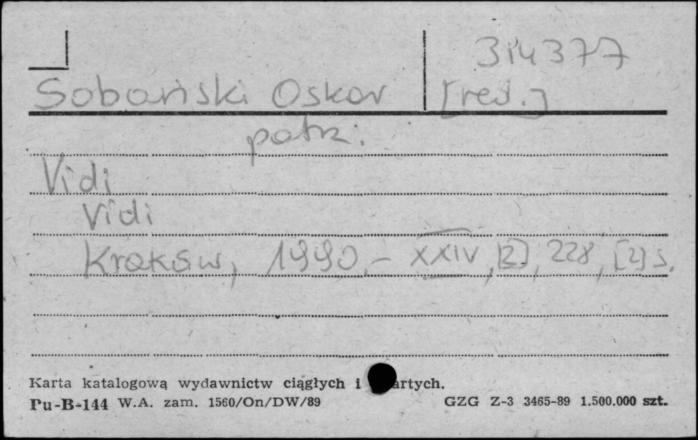 314377
Sobański Oskar [red.]
patrz:
Vidi
Vidi
Kraków, 1990. - XXIV, [2], 228, [2] s.
Karta katalogową wydawnictw ciągłych i artych.
Pu-B-144 W.A. zam. 1560/On/DW/89 GZG Z-3 3465-89 1.500.000 szt.